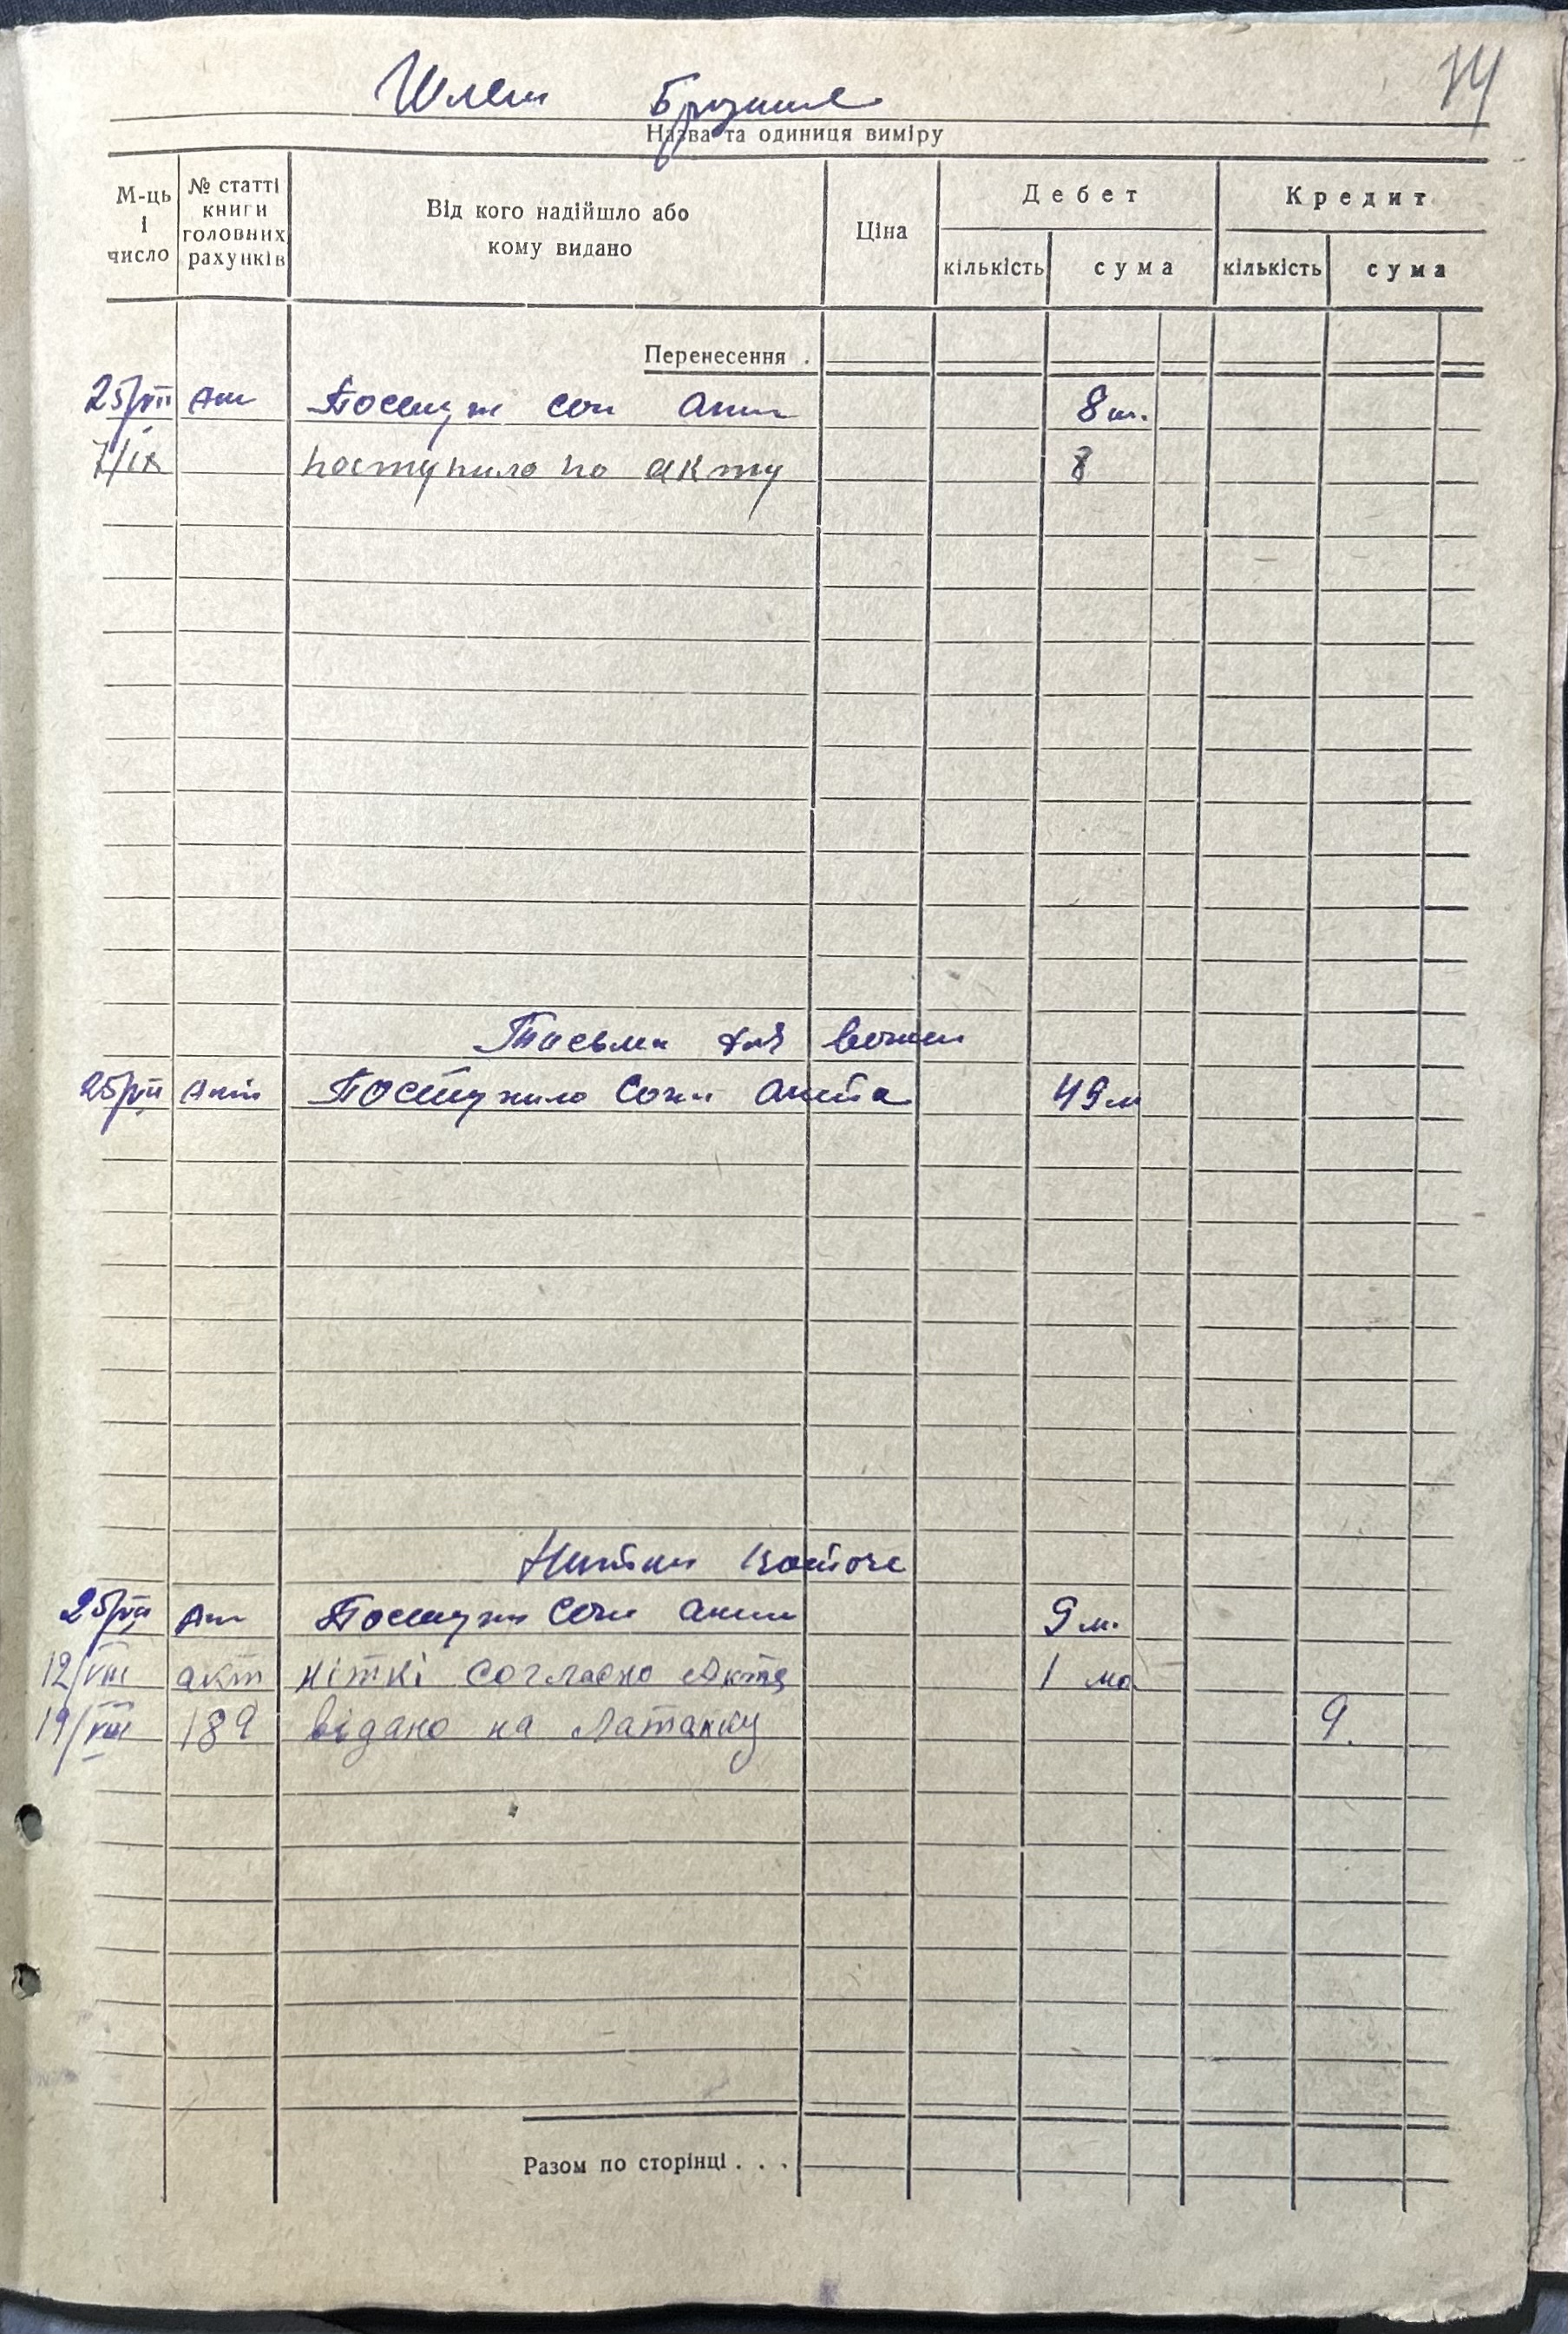 74
Шлеи
Назва та одиниця виміру
М-ць і число
№ статті книги головних рахунків
Від кого надійшло або кому видано
Ціна
Дебет
Кредит
кількість
сума
кількість
сума
Перенесення .
25/VII Акт Поступ сог Акт 8 ш.
7/IX поступило по акту 8
Тасьма для вожен
25/VII Акт Поступило Согл Акта 49 м
Нитки
25/VII Акт Поступ Согл Акт 9 м.
12/VIII акт ніткі согласно Акта 1 мо
19/VIII 189 відано на латанку 9.
Разом по сторінці . . .